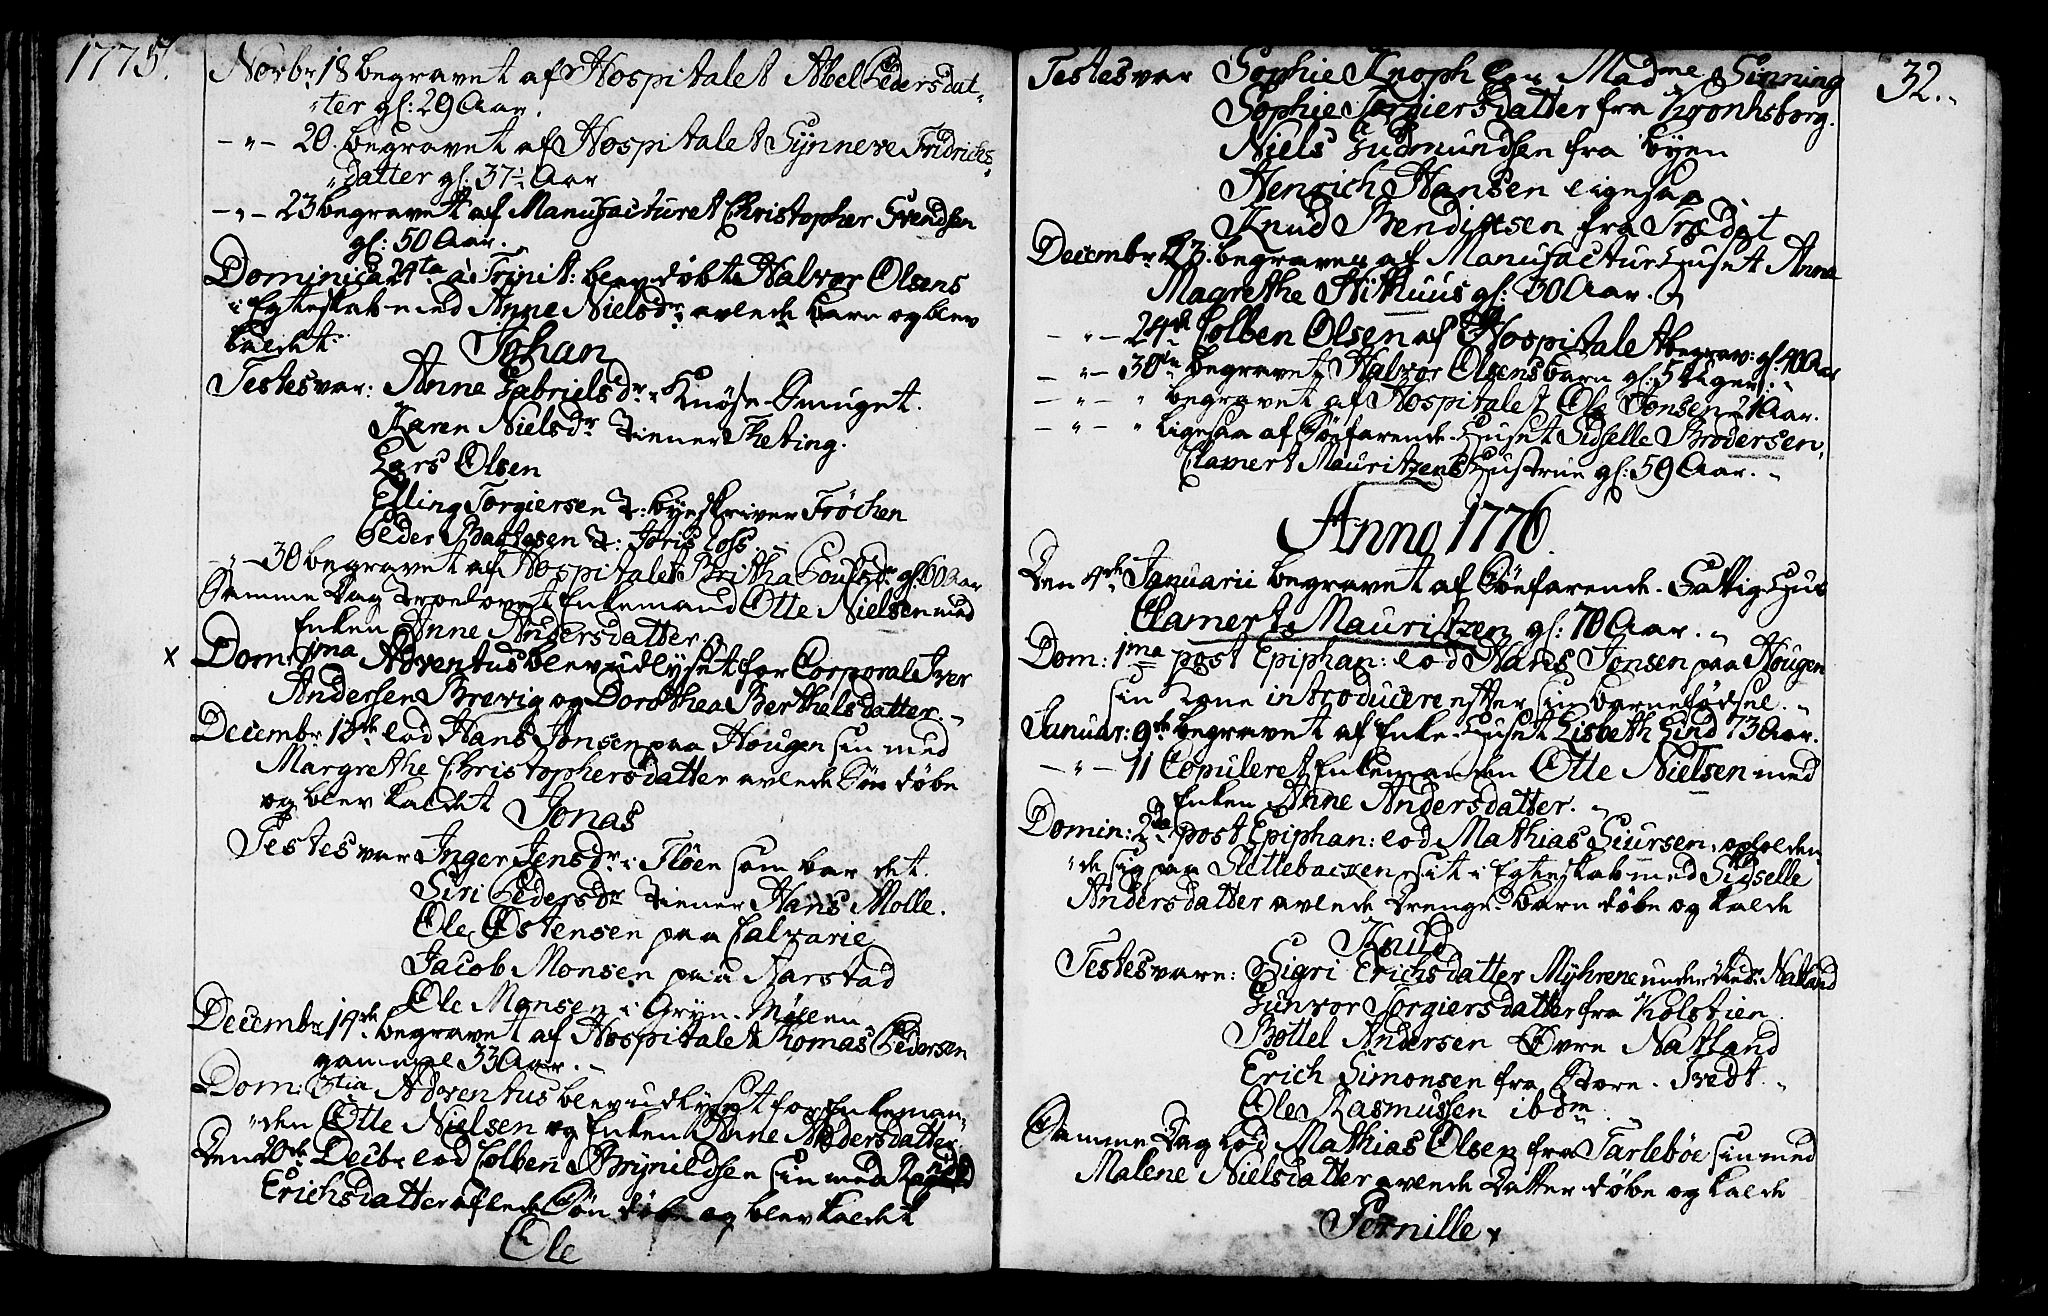 1775.
Novbr 18 begravet af Hospitalet Abel Pedersdat-
ter gl: 29 Aar.
- " - 20. begravet af Hospitalet Synneve Fridrichs-
datter gl. 37½ Aar
- " - 23 begravet af Manufacturet Christopher Svendsen
gl: 50 Aar.
Dominica 24ta a Trinit: blev døbt Halvor Olsens
i Egteskab med Anne Nielsdr: avlede barn og blev
kaldet
Johan
Testes var: Anne Gabrielsdr: Knøse-Smuget.
Karen Nielsdr tiener Theting.
Lars Olsen
Elling Torgiersen t: byeskriver Frøchen
Peder Baltesen t: Joris Loss
- " - 30 begravet af Hospitalet Britha Poulsdr gl. 60 Aar
Samme Dag trolovet Enkemand Otte Nielsen med
Enken Anne Andersdatter.
x Dom: 1ma Adventus blev udlyset for Corporal Iver
Andersen Brevig og Dorothea Berthelsdatter. -
Decembr 13de lod Hans Jonsen paa Hougen sin med
Margrethe Christophersdatter avlede Søn døbe
og blev kaldet Jonas
Testes var Inger Jensdr i Fløen som bar det.
Siri Pedersdr tiener Hans Molle.
Ole Østensen paa Calvarie
Jacob Monsen paa Aarstad
Ole Monsen i Gryn-Møllen
Decembr 14de begravet af Hospitalet Thomas Pedersen
gammel 33 Aar. -
Dom: 3tia Adventus blev udlyset for Enkeman-
den Otte Nielsen og Enken Anne Andersdatter
Den 20de Decbr lod Colben Brynildsen sin med
Erichsdatter aflede Søn døbe og blev kaldet
Ole
32.
Testes var Sophie Knoph Madme Sinning
Sophie Torgiersdatter fra Kronhsborg.
Niels Gudmundsen fra byen
Henrich Hansen ligesaa
Knud Bendixsen fra Trædet
Decembr 23. begraven af Manufacturhuset Anne
Magrethe Hithuus gl: 30 Aar.
- " - 24de Colben Olsen af Hospitalet begrav: gl. 40 Aar
- " - 30te begravet Halvor Olsens barn gl. 5 Uger. -
- " - " begravet af Hospitalet Ole Jonsen 21 Aar.
- " - " ligesaa af Søefarende-Huset Sidselle Brodersen,
Clamert Mauritzens Hustrue gl: 59 Aar. -
Anno 1776.
Den 4de Januarii begravet af Søefarende-Fattig Hus
Clamert Mauritzen gl: 70 Aar. -
Dom: 1ma post Epiphan: lod Hans Jonsen paa Hougen
sin Kone introducere efter sin barnefødsel. -
Januar: 9de begravet af Enke-Huset Lisbeth Lind 73 Aar.
- " - 11 Copuleret Enkemanden Otte Nielsen med
Enken Anne Andersdatter. -
Domin: 2da post Epiphan: lod Mathias Siursen, opholden-
de sig paa Slettebacken sit i Egteskab med Sidselle
Andersdatter avlede Drenge-barn døbe og kalde
Knud
Testes vare: Sigri Erichsdatter Myhrene under Nedr: Natland
Gunvor Torgiersdatter fra Kolstien
Bottel Andersen Øvre Natland
Erich Simonsen fra Store-Tvedt. -
Ole Rasmussen ibdm
Samme Dag lod Mathias Olsen fra Tarlebøe sin med
Malene Nielsdatter avlede Datter døbe og kalde
Pernille.